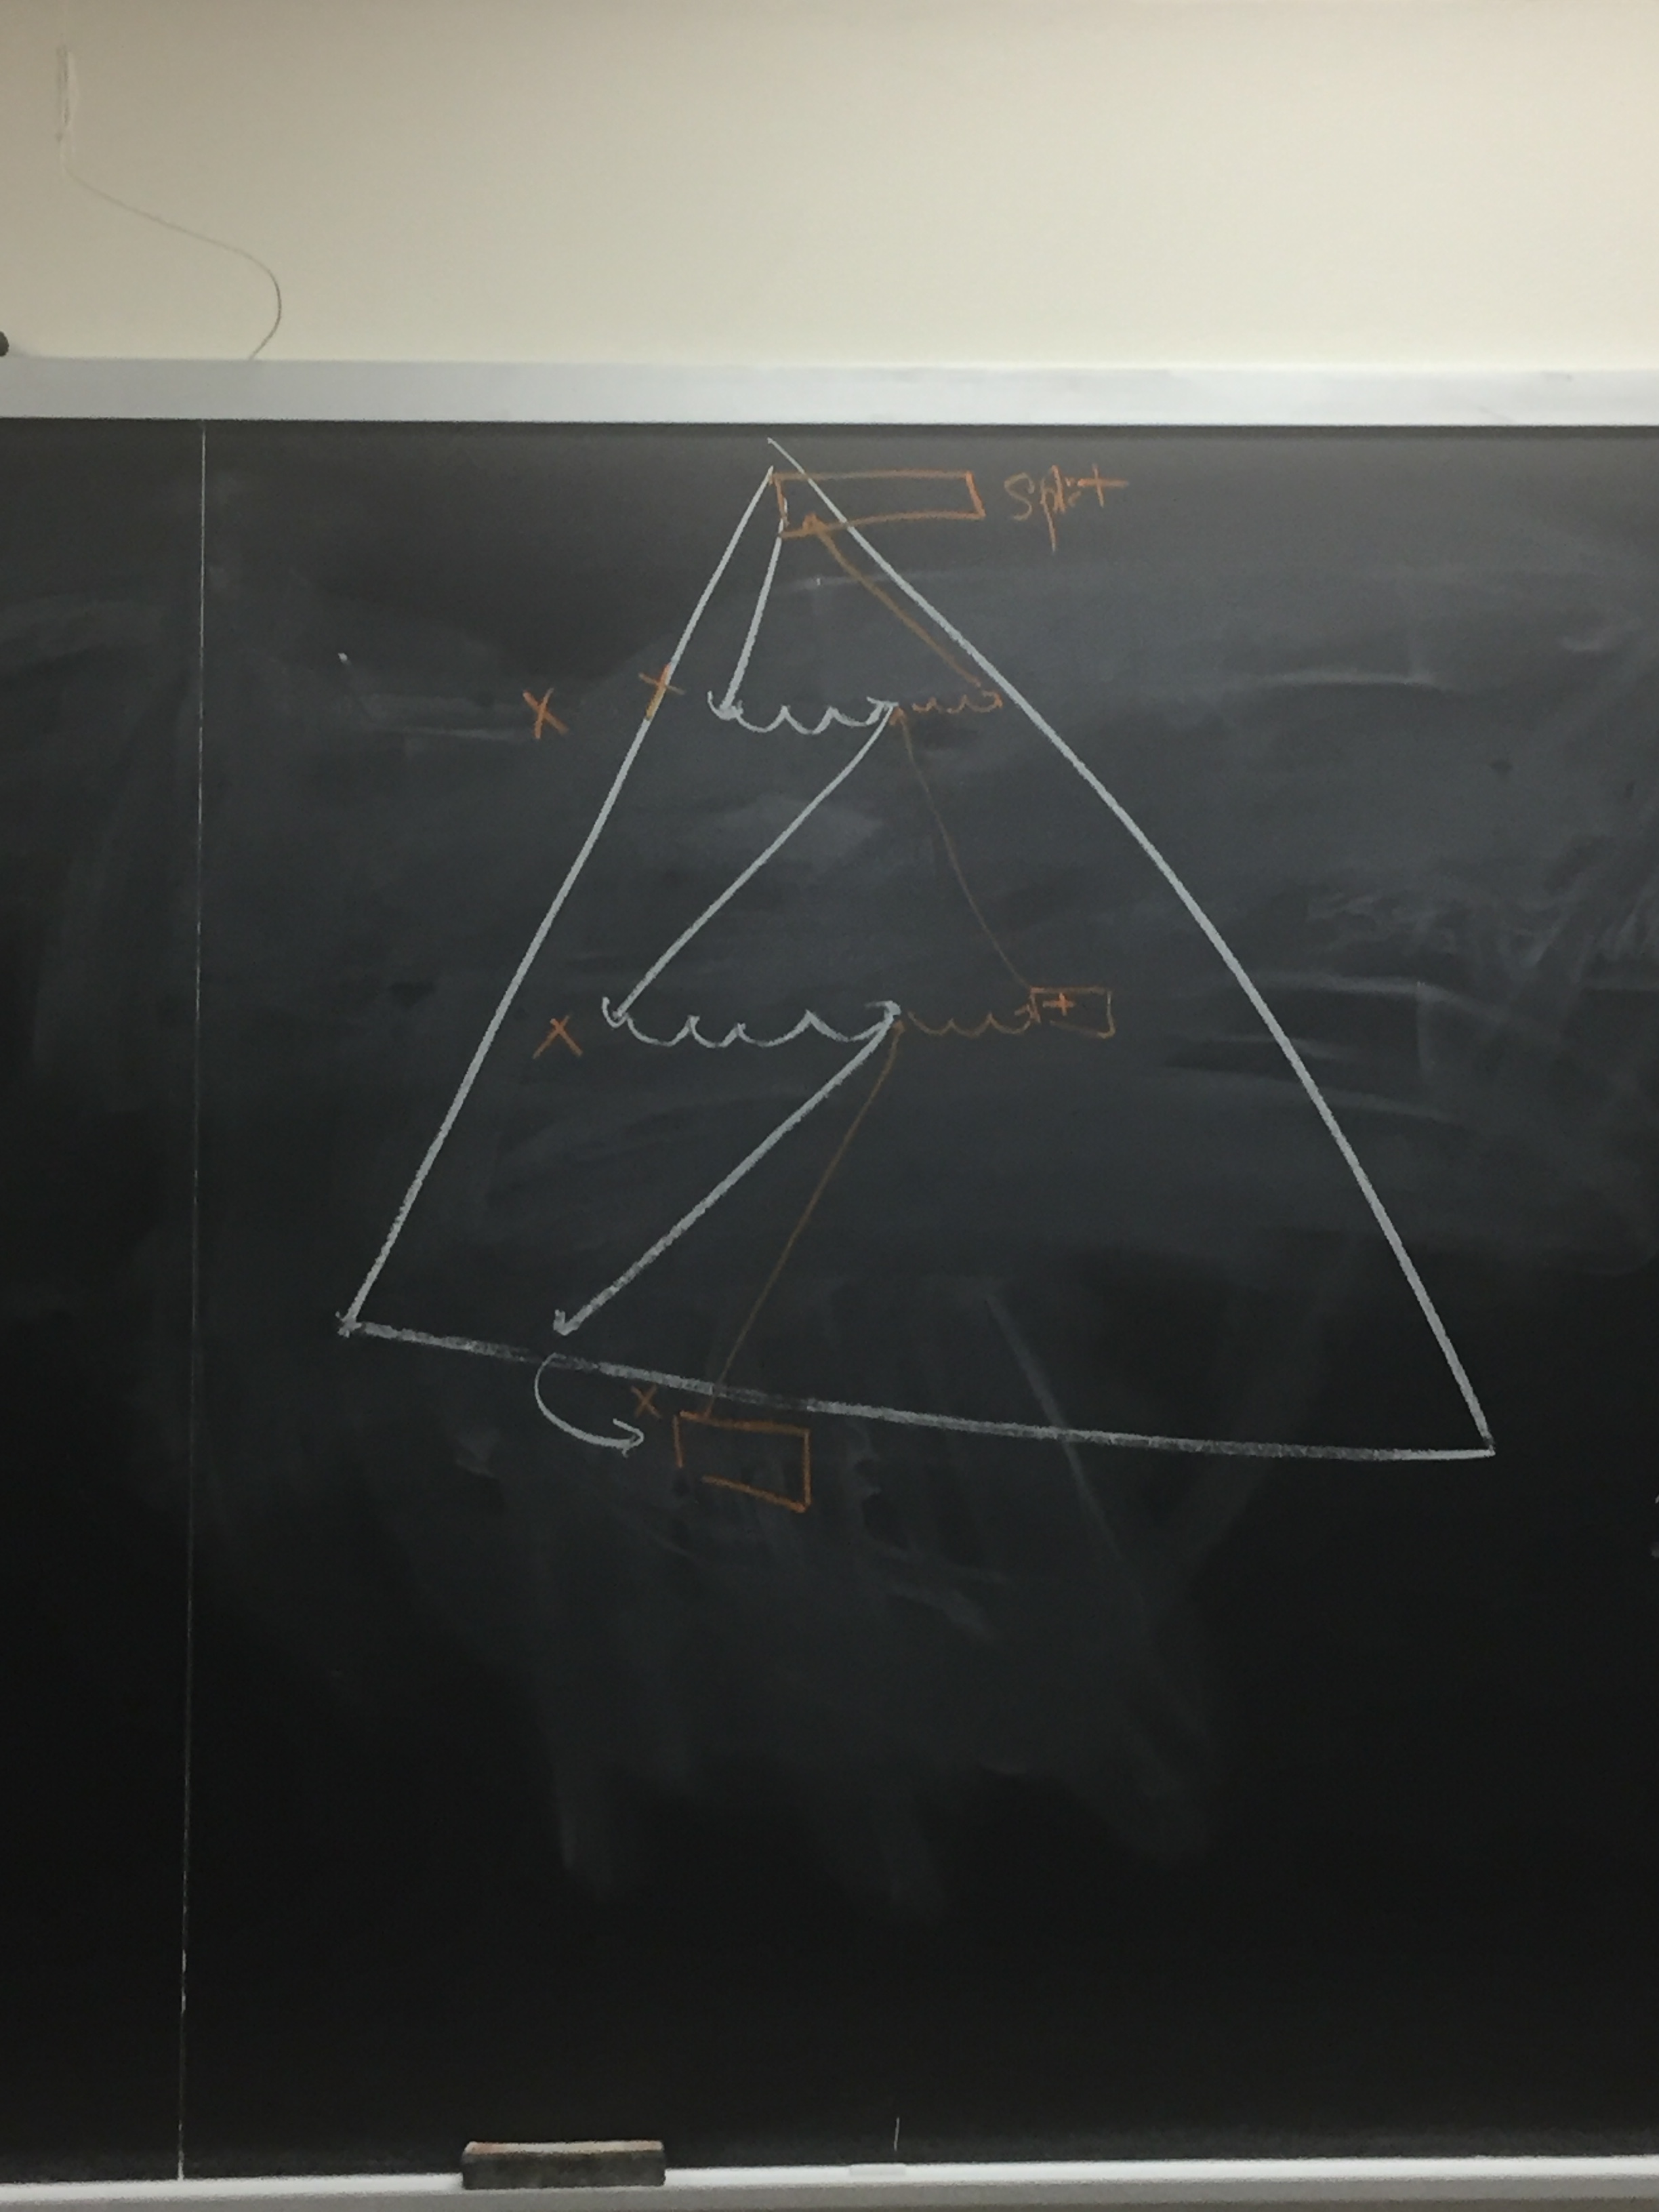 Split
X +
X +
X